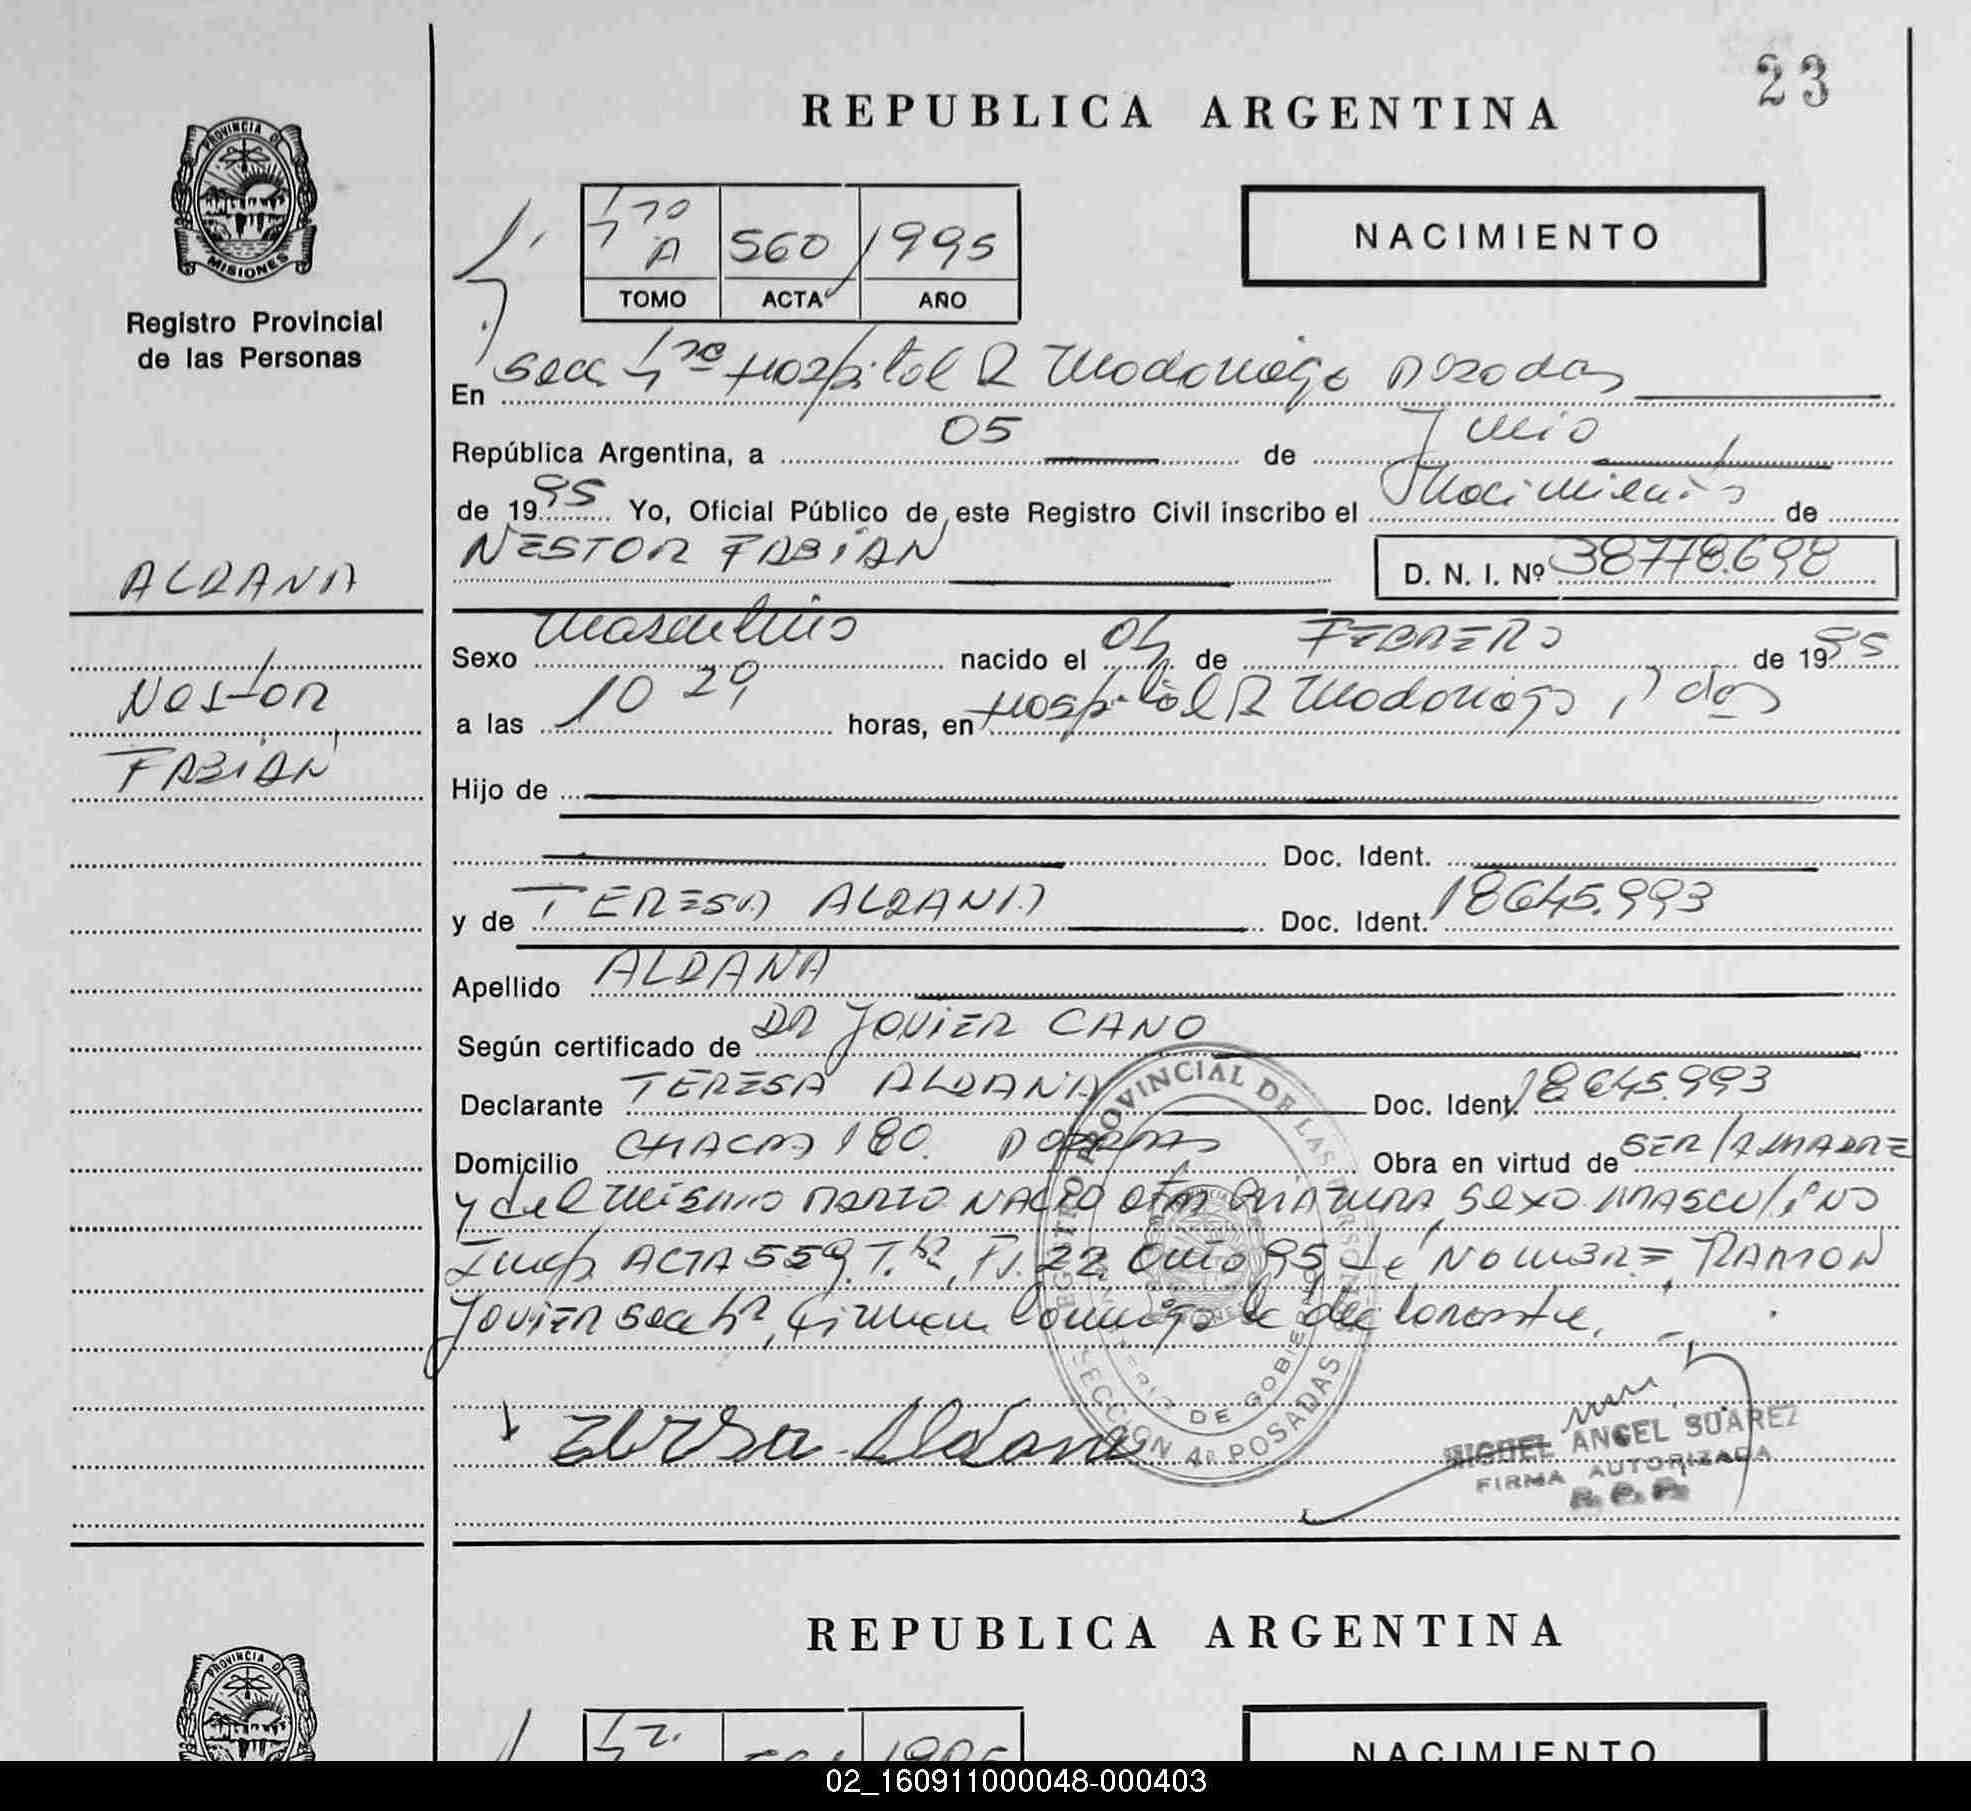 23
REPUBLICA ARGENTINA
PROVINCIA DE
MISIONES
Registro Provincial
de las Personas
4ta A 560 1995
TOMO ACTA AÑO
NACIMIENTO
En Secc 4ta Hospital R Madariaga Posadas
República Argentina, a 05 de Junio
de 1995 Yo, Oficial Público de este Registro Civil inscribo el Nacimiento de
NESTOR FABIAN D. N. I. Nº 38778.698
ALDANA
Nestor
FABIAN
Sexo Masculino nacido el 04 de FEBRERO de 1995
a las 10 29 horas, en Hospital R Madariaga, Pdas
Hijo de
Doc. Ident.
y de TERESA ALDANA Doc. Ident. 18645.993
Apellido ALDANA
Según certificado de DR JAVIER CANO
Declarante TERESA ALDANA Doc. Ident. 18645.993
Domicilio CHACRA 180. POSADAS Obra en virtud de SER LA MADRE
y del mismo PARTO NACIO OTRA CRIATURA, SEXO MASCULINO
Insc. ACTA 559. T. Fº. 22. Año 95, de NOMBRE, RAMON
JAVIER Secc 4ta, firman conmigo la declarante.
Teresa Aldana
REGISTRO PROVINCIAL DE LAS PERSONAS
MINISTERIO DE GOBIERNO
SECCION 4ª POSADAS
MIGUEL ANGEL SUAREZ
FIRMA AUTORIZADA
R. P. P.
REPUBLICA ARGENTINA
PROVINCIA DE
NACIMIENTO
02_160911000048-000403